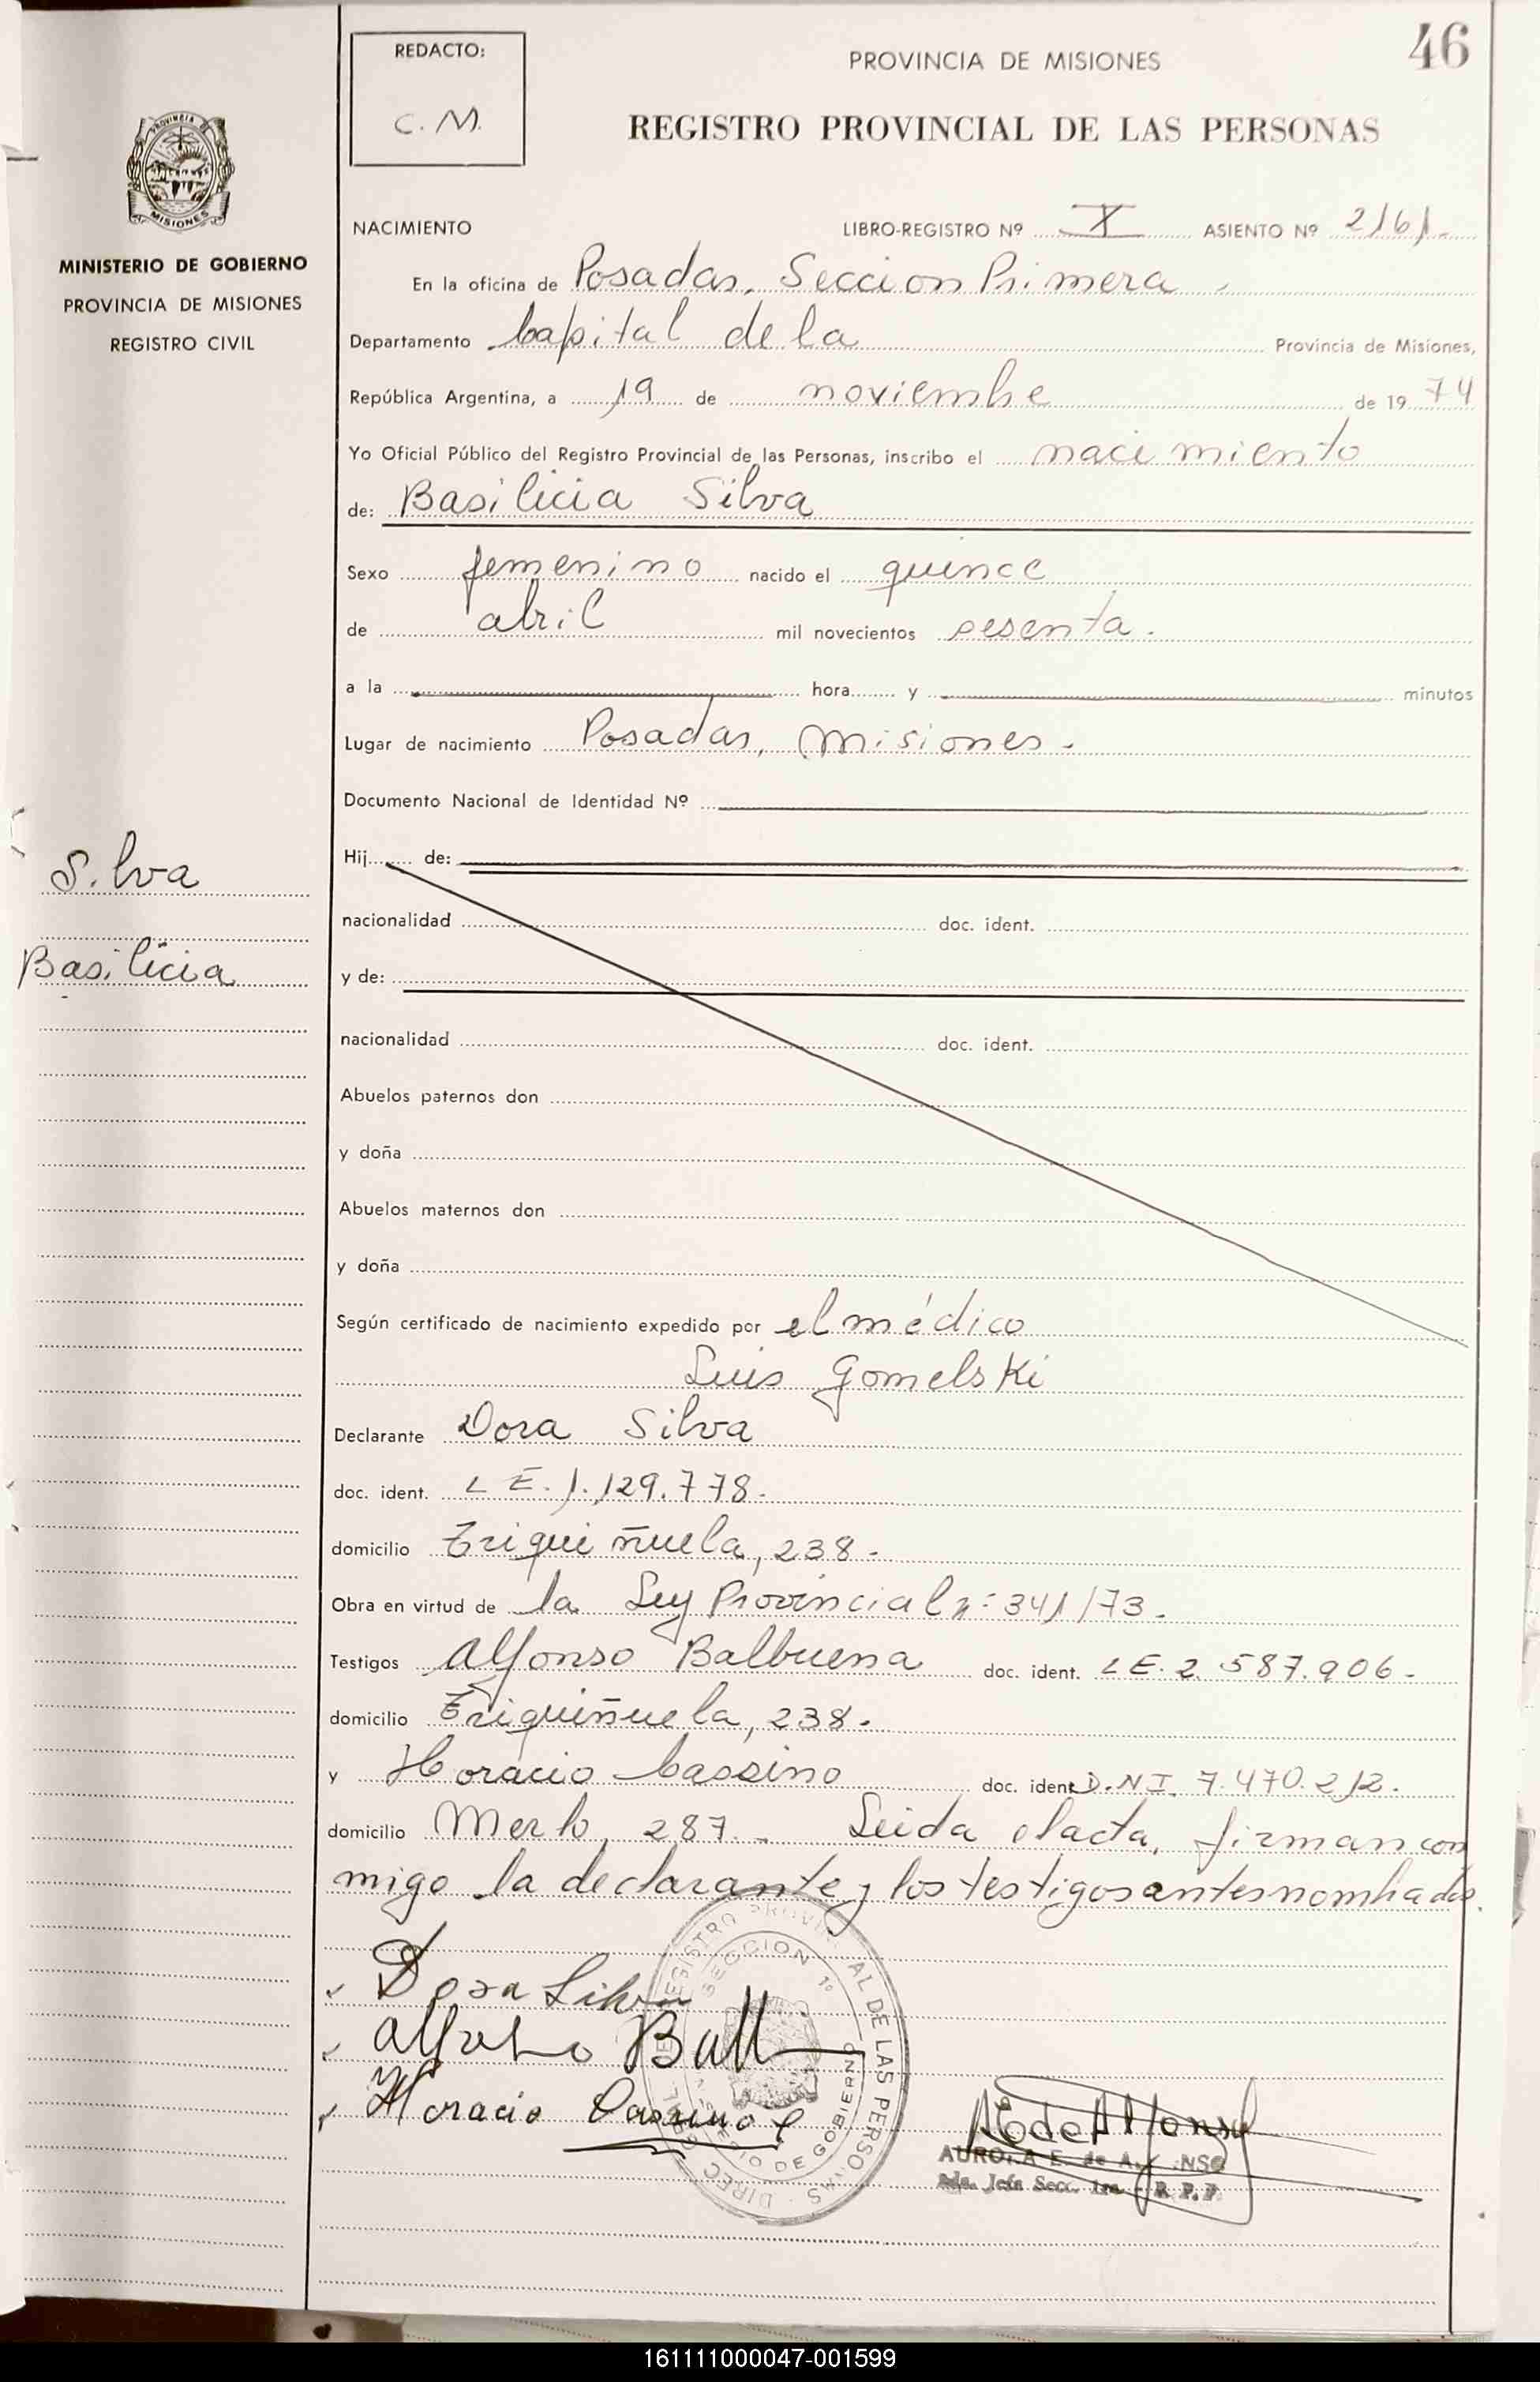 46
REDACTO:
C. M.
PROVINCIA DE MISIONES
REGISTRO PROVINCIAL DE LAS PERSONAS
PROVINCIA DE
MISIONES
MINISTERIO DE GOBIERNO
PROVINCIA DE MISIONES
REGISTRO CIVIL
NACIMIENTO LIBRO-REGISTRO Nº X ASIENTO Nº 2161.
En la oficina de Posadas, Seccion Primera
Departamento Capital de la Provincia de Misiones,
República Argentina, a 19 de noviembre de 19 74
Yo Oficial Público del Registro Provincial de las Personas, inscribo el nacimiento
de: Basilicia Silva
Sexo femenino nacido el quince
de abril mil novecientos sesenta.
a la hora y minutos
Lugar de nacimiento Posadas, Misiones.
Documento Nacional de Identidad Nº
Silva
Basilicia
Hij de:
nacionalidad doc. ident.
y de:
nacionalidad doc. ident.
Abuelos paternos don
y doña
Abuelos maternos don
y doña
Según certificado de nacimiento expedido por el médico
Luis Gomelski
Declarante Dora Silva
doc. ident. L E. 1.129.778.
domicilio Triquiñuela, 238.
Obra en virtud de la Ley Provincial nº 341/73.
Testigos Alfonso Balbuena doc. ident. L E. 2.587.906.
domicilio Triquiñuela, 238.
y Horacio Cassino doc. ident D.N.I. 7.470.212.
domicilio Merlo, 287. Leida el acta, firman con
migo la declarante y los testigos antes nombrados.
Dora Silva
Alfonso Balb
Horacio Cassino
REGISTRO PROVINCIAL DE LAS PERSONAS
SECCION 1º
DE GOBIERNO
AURORA E. de ALFONSO
Jefa Secc. 1ra. R. P. P.
161111000047-001599